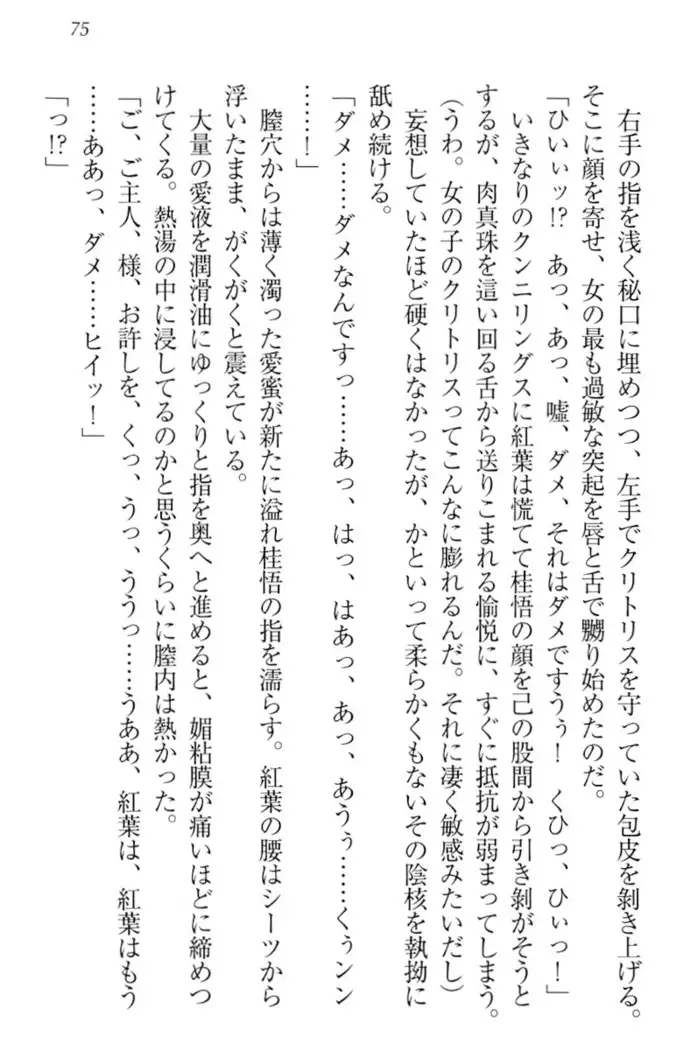 75
右手の指を浅く秘口に埋めつつ、左手でクリトリスを守っていた包皮を剝き上げる。
そこに顔を寄せ、女の最も過敏な突起を唇と舌で嬲り始めたのだ。
「ひいぃッ!? あっ、あっ、嘘、ダメ、それはダメですうぅ! くひっ、ひぃっ!」
いきなりのクンニリングスに紅葉は慌てて桂悟の顔を己の股間から引き剝がそうと
するが、肉真珠を這い回る舌から送りこまれる愉悦に、すぐに抵抗が弱まってしまう。
(うわ。女の子のクリトリスってこんなに膨れるんだ。それに凄く敏感みたいだし)
妄想していたほど硬くはなかったが、かといって柔らかくもないその陰核を執拗に
舐め続ける。
「ダメ……ダメなんですっ……あっ、はっ、はあっ、あっ、あうぅ……くぅンン
……!」
膣穴からは薄く濁った愛蜜が新たに溢れ桂悟の指を濡らす。紅葉の腰はシーツから
浮いたまま、がくがくと震えている。
大量の愛液を潤滑油にゆっくりと指を奥へと進めると、媚粘膜が痛いほどに締めつ
けてくる。熱湯の中に浸してるのかと思うくらいに膣内は熱かった。
「ご、ご主人、様、お許しを、くっ、うっ、ううっ……うああ、紅葉は、紅葉はもう
……ああっ、ダメ……ヒイッ!」
「っ!?」